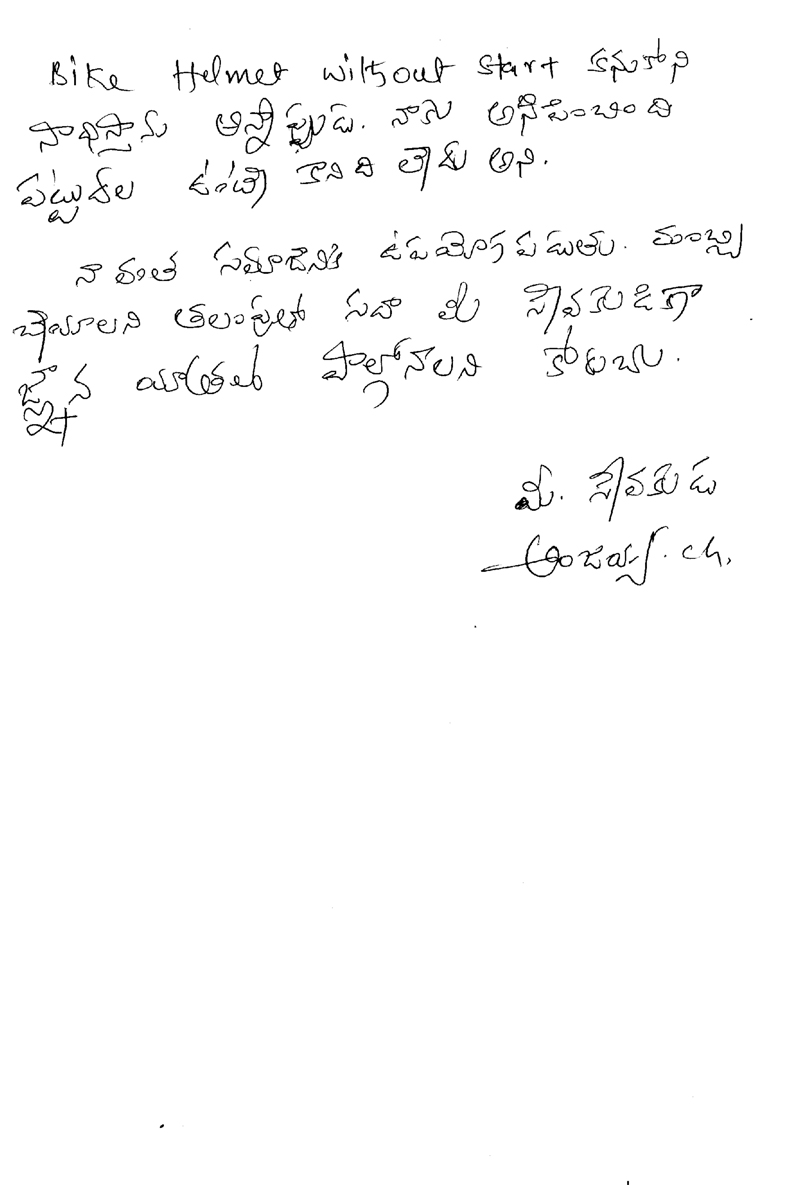 Bike Helmet without start కనుకోని
సాధిస్తాను అన్నప్పుడు. నాకు అనిపించింది
పట్టుదల ఉంటే కానిది లేదు అని.
నా వంతు సమాజానికి ఉపయోగపడుతు. మంచి
చేయాలని తలంపుతో సదా మీ సేవకుడిగా
జ్ఞాన యాత్రలో పాల్గోనాలని కోరుచు.
మీ. సేవకుడు
అంజయ్య. ch.